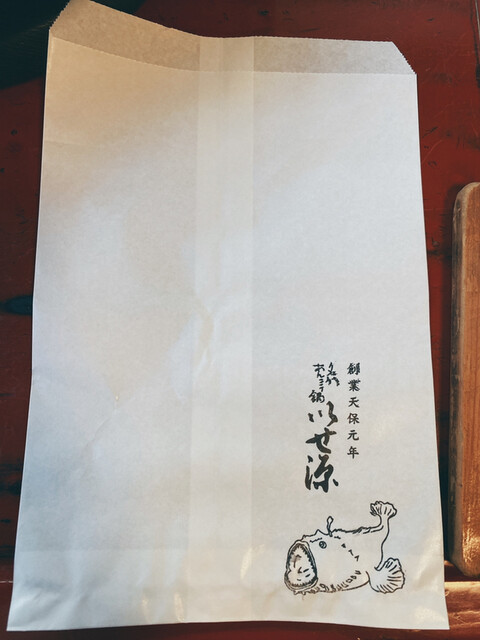 創業天保元年
名物
あんこう鍋
いせ源